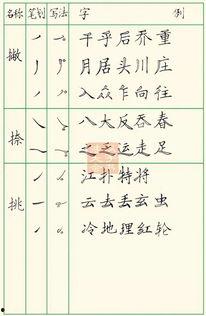 名称 笔划 写法 字 例
撇
干乎后乔重
月居头川庄
入众乍向往
捺
八大反吞春
之乏运走足
挑
江扑特将
云去丢玄虫
冷地理红轮